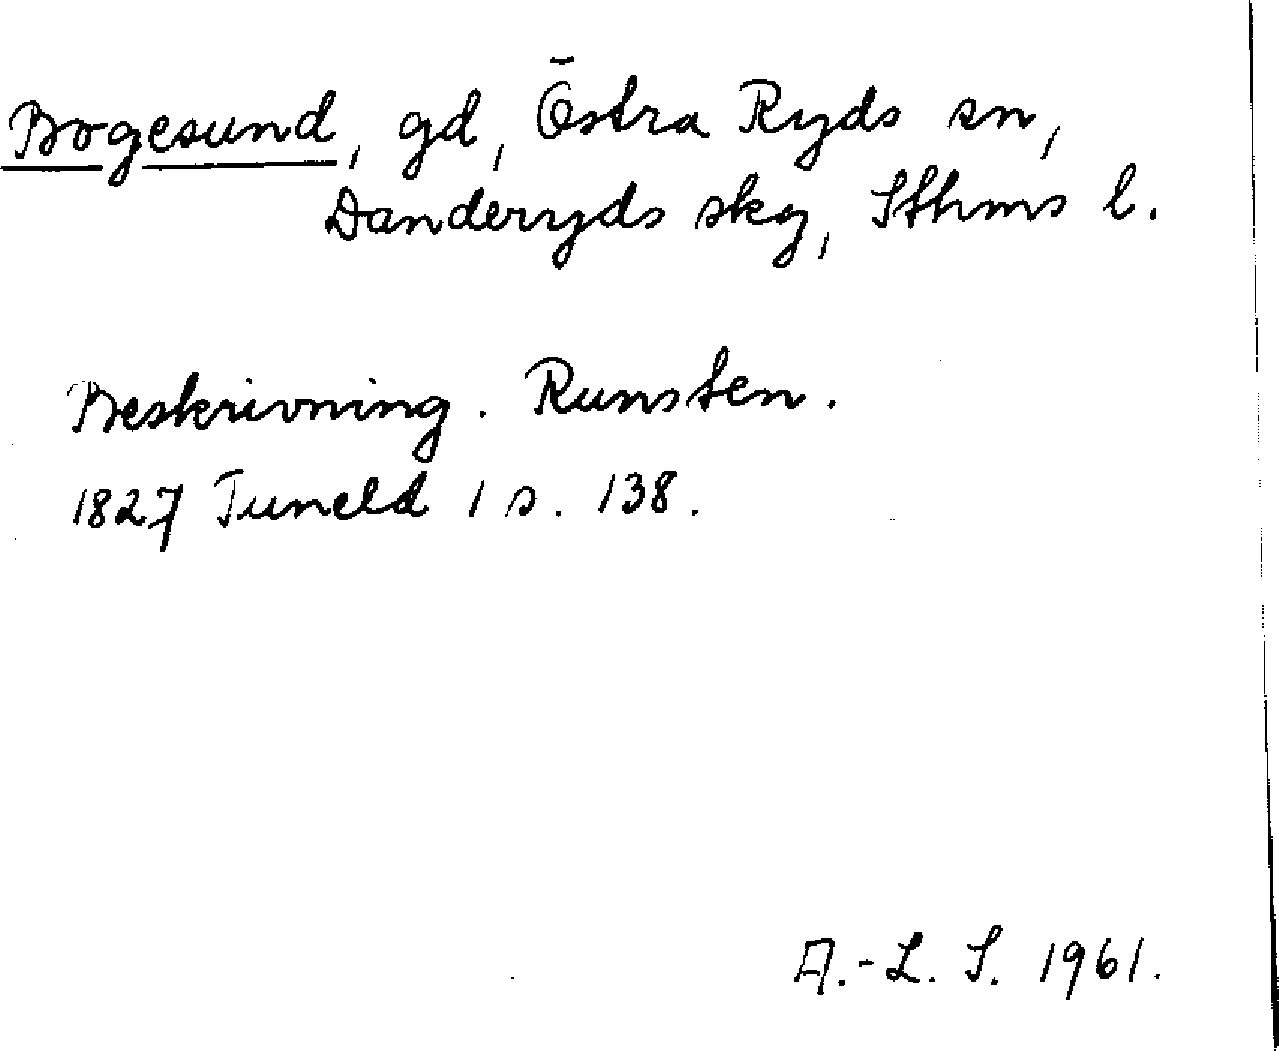 Bogesund, gd, Östra Ryds sn,
Danderyds skg, Sthms l.
Beskrivning. Runsten.
1827 Tuneld 1 s. 138.
A.-L. S. 1961.